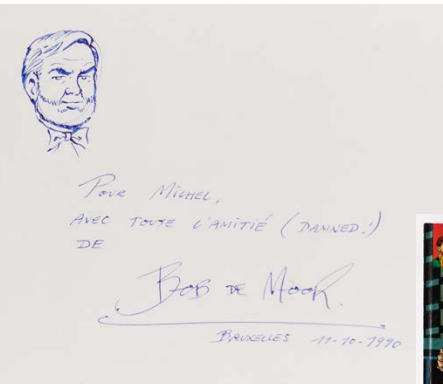 Pour Michel,
avec toute l'amitié (Damned!)
de
Bob de Moor.
Bruxelles 11-10-1990